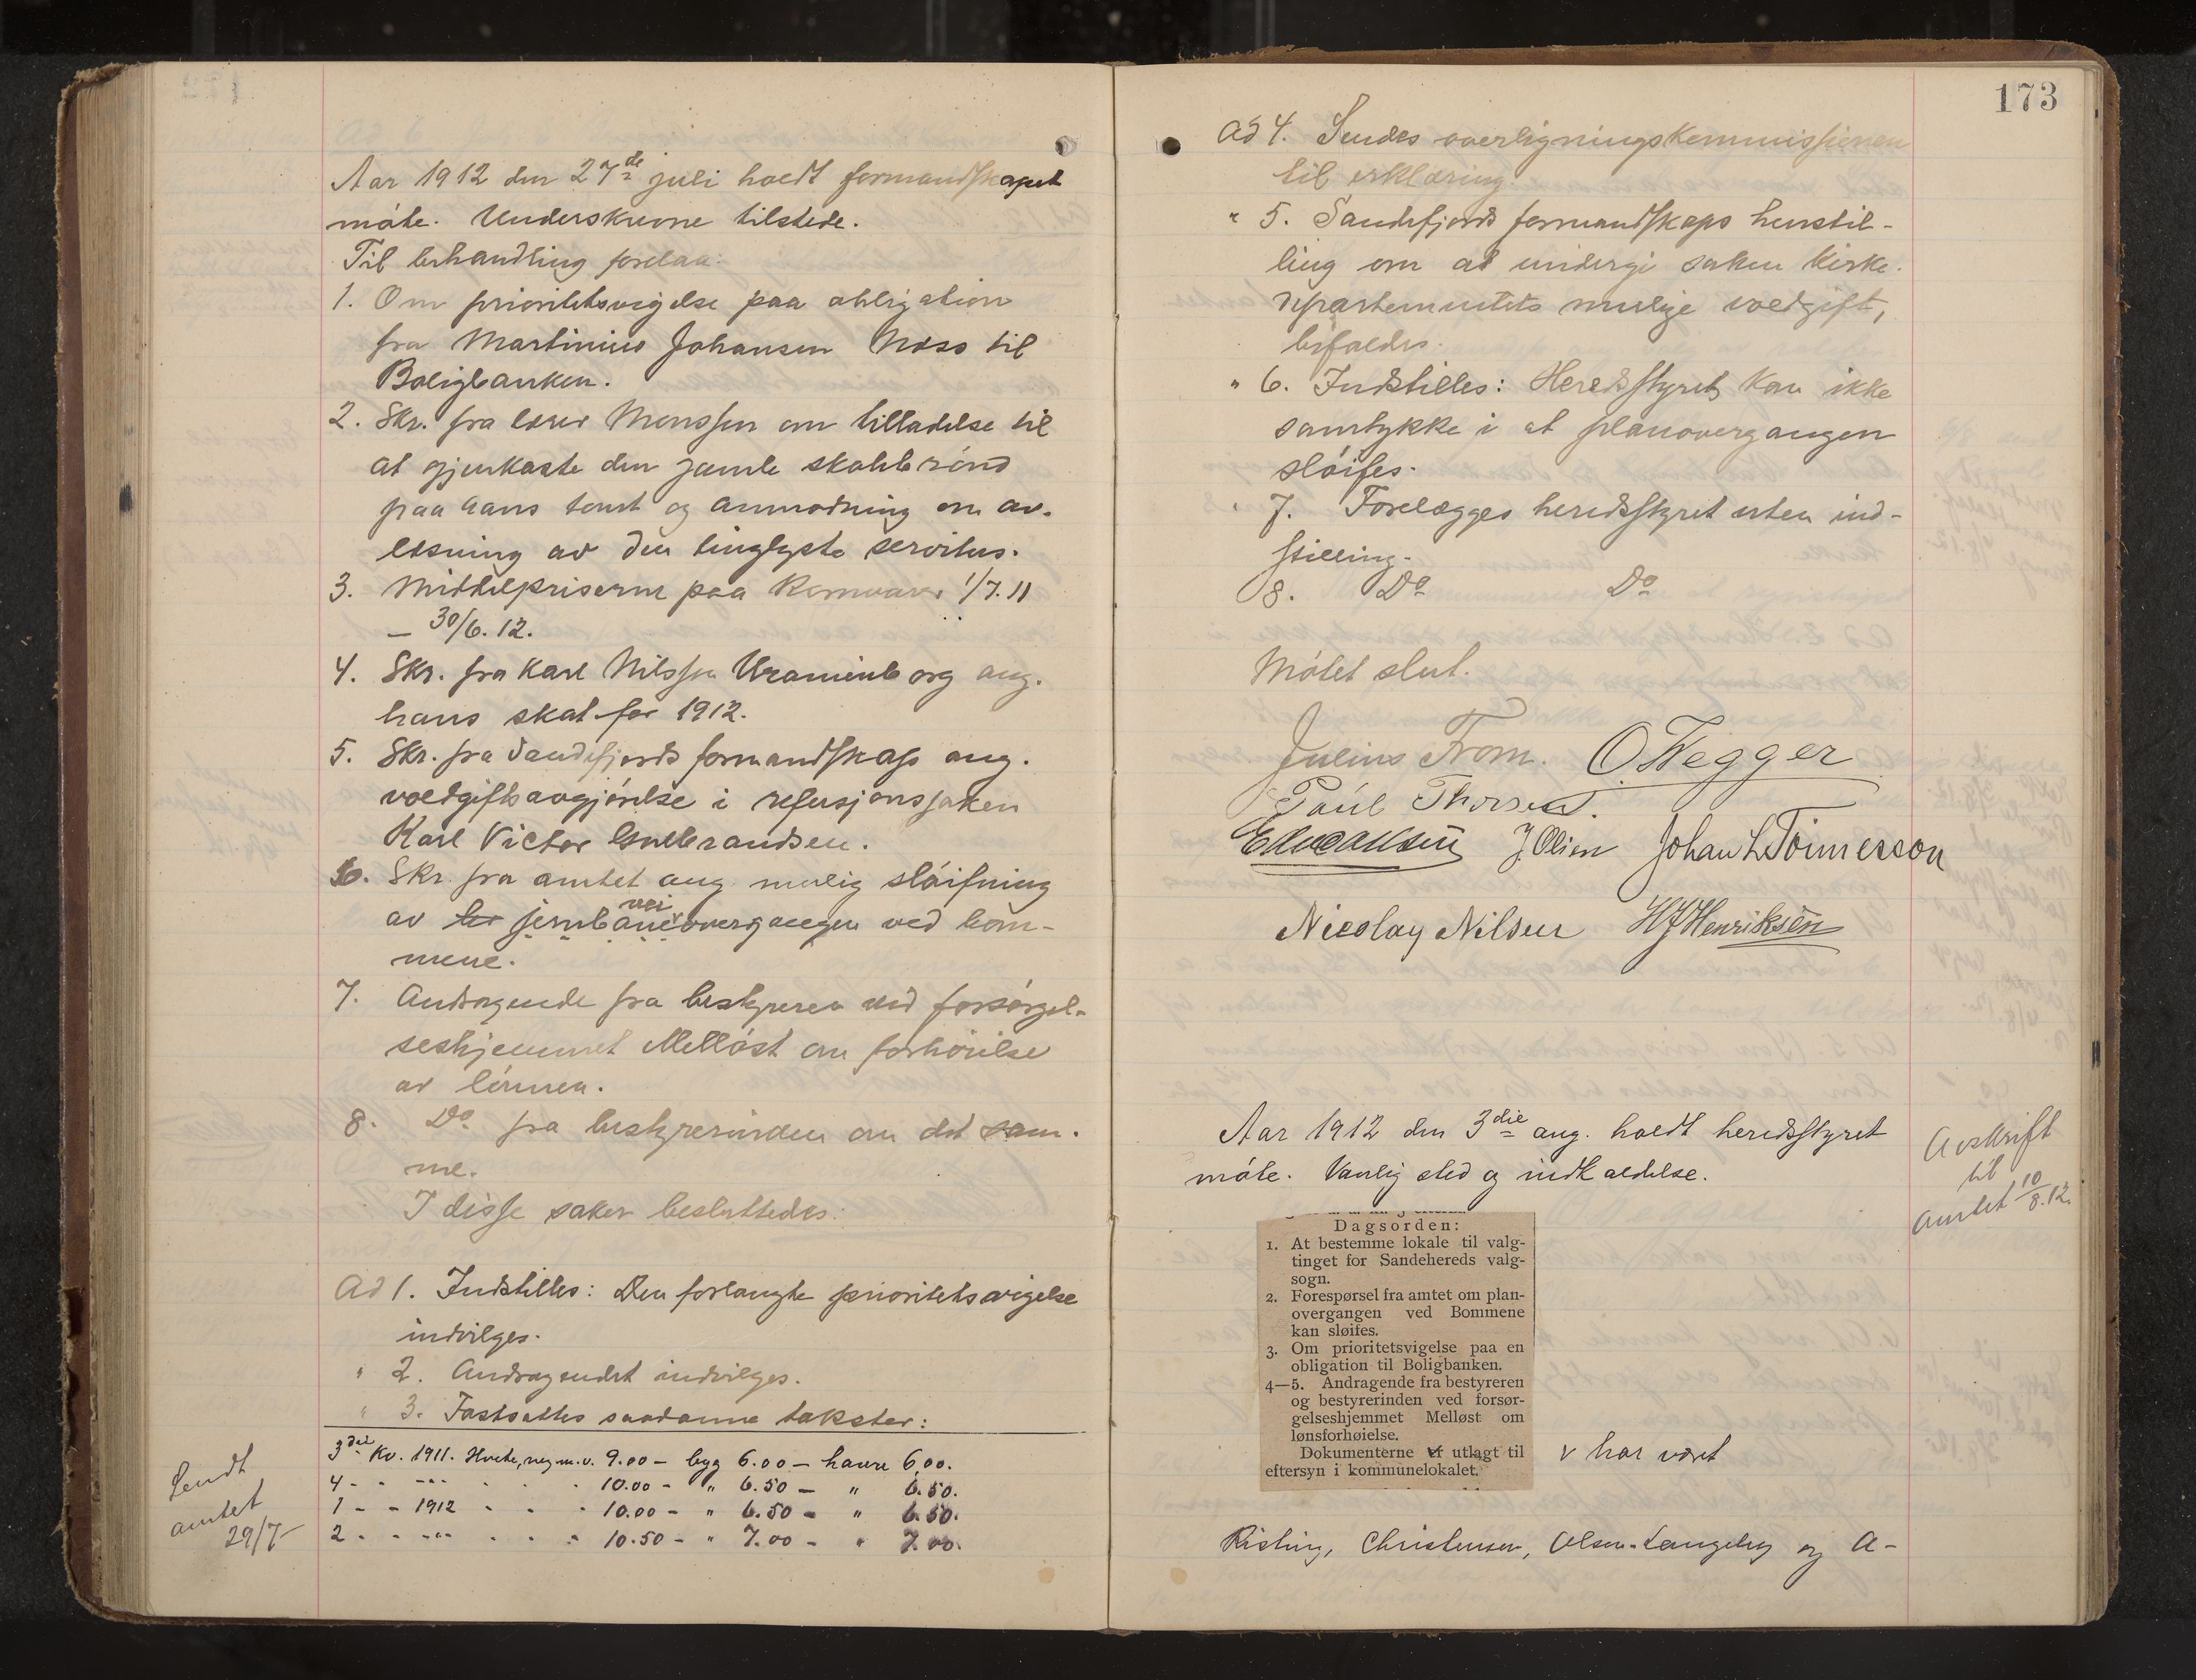 Aar 1912 den 27de juli holdt formandskapet
møte. Underskrevne tilstede.
Til behandling forelaa:
1. Om prioritetsvigelse paa obligation
fra Martinius Johansen Næss til
Boligbanken.
2. Skr. fra lærer Monssen om tilladelse til
at gjenkaste den gamle skolebrønd
paa hans tomt og anmodning om av-
løsning av den tinglyste servitus.
3. Middelpriserne paa kornvarer 1/7.11
— 30/6.12.
4. Skr. fra Karl Nilssen Uranienborg ang.
hans skat for 1912.
5. Skr. fra Sandefjords formandskap ang.
voldgiftsavgjørelse i refusjonssaken
Karl Victor Gulbrandsen.
6. Skr. fra amtet ang. mulig sløifning
av jernbaneoverganger ved bom-
vei
mene.
7. Andragende fra bestyreren ved forsørgel-
seshjemmet Melløst om forhøielse
av lønnen.
8. Do fra bestyrerinden om det sam-
me.
I disse saker besluttedes:
Ad 1. Indstilles: Den forlangte prioritetsvigelse
indvilges.
" 2. Andragendet indvilges.
" 3. Fastsattes saadanne takster:
3die Kv. 1911. Hvete, rug m.v. 9.00 — byg 6.00 — havre 6.00.
4 - - -"- - - - 10.00 - " 6.50 — " 6.50.
1 - - 1912 - - - 10.00 - " 6.50 — " 6.50.
2 - - -"- - - - 10.50 - " 7.00 - " 7.00.
Sendt
amtet
29/7
173
Ad 4. Sendes overligningskommissionen
til erklæring.
" 5. Sandefjords formandskaps henstil-
ling om at undergi saken Kirke-
departementets mulige voldgift,
bifaldes.
" 6. Indstilles: Heredsstyret kan ikke
samtykke i at planovergangen
sløifes.
" 7. Forelægges heredsstyret uten ind-
stilling.
8. Do Do
Møtet slut.
Julius From. O Wegger
Paul Thorsen.
J Olsen Johan L Tønnesson
Nicolay Nilsen HJHenriksen
Aar 1912 den 3die aug. holdt heredsstyret
møte. Vanlig sted og indkaldelse.
Avskrift
til
amtet 10/8.12.
Dagsorden:
1. At bestemme lokale til valg-
tinget for Sandehereds valg-
sogn.
2. Forespørsel fra amtet om plan-
overgangen ved Bommene
kan sløifes.
3. Om prioritetsvigelse paa en
obligation til Boligbanken.
4—5. Andragende fra bestyreren
og bestyrerinden ved forsør-
gelseshjemmet Melløst om
lønsforhøielse.
Dokumenterne er utlagt til
eftersyn i kommunelokalet.
v har været
Risting, Christensen, Olsen-Langeby og A-